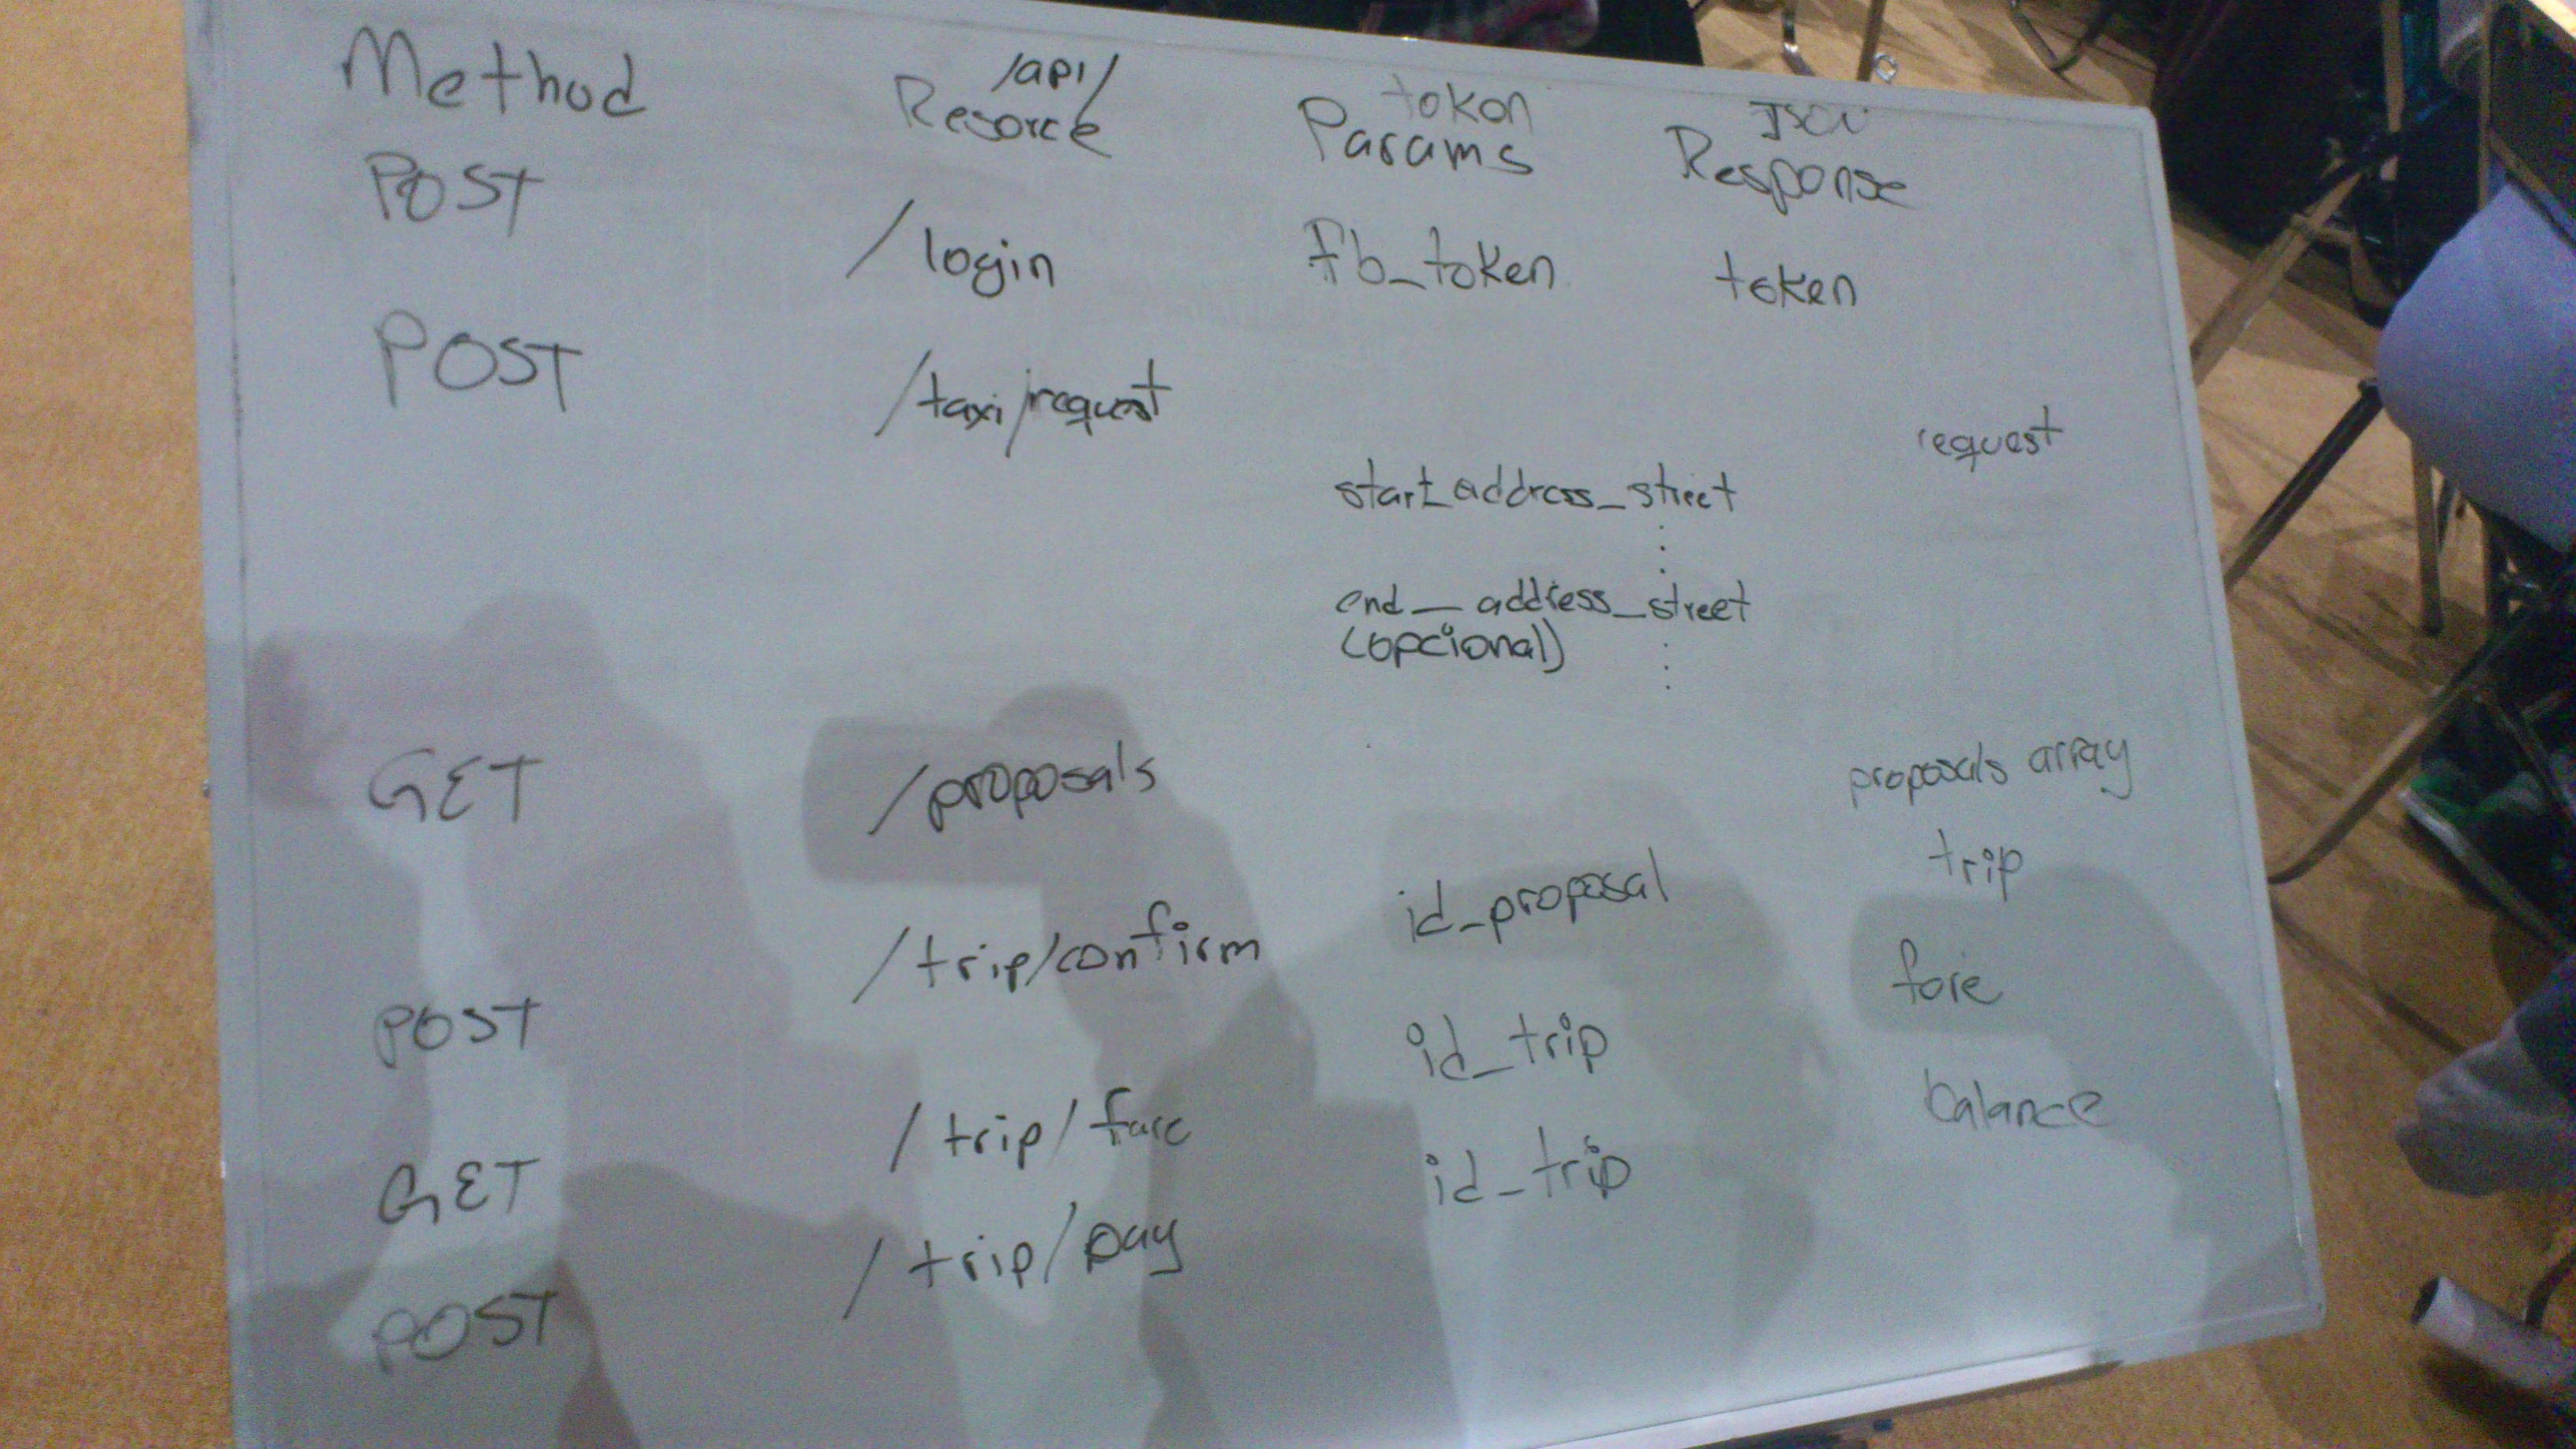 Method /api/ Resorce token Params JSON Response
POST /login fb_token token
POST /taxi/request request
start_address_street
end_address_street
(opcional)
GET /proposals proposals array
POST /trip/confirm id_proposal trip
GET /trip/fare id_trip fare
POST /trip/pay id_trip balance